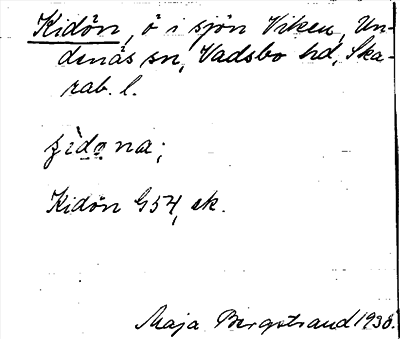 Kidön, ö i sjön Viken, Un-
denäs sn, Vadsbo hd, Ska-
rab. l.
ʒìdọna;
Kidön G54, ek.
Maja Bergstrand 1938.